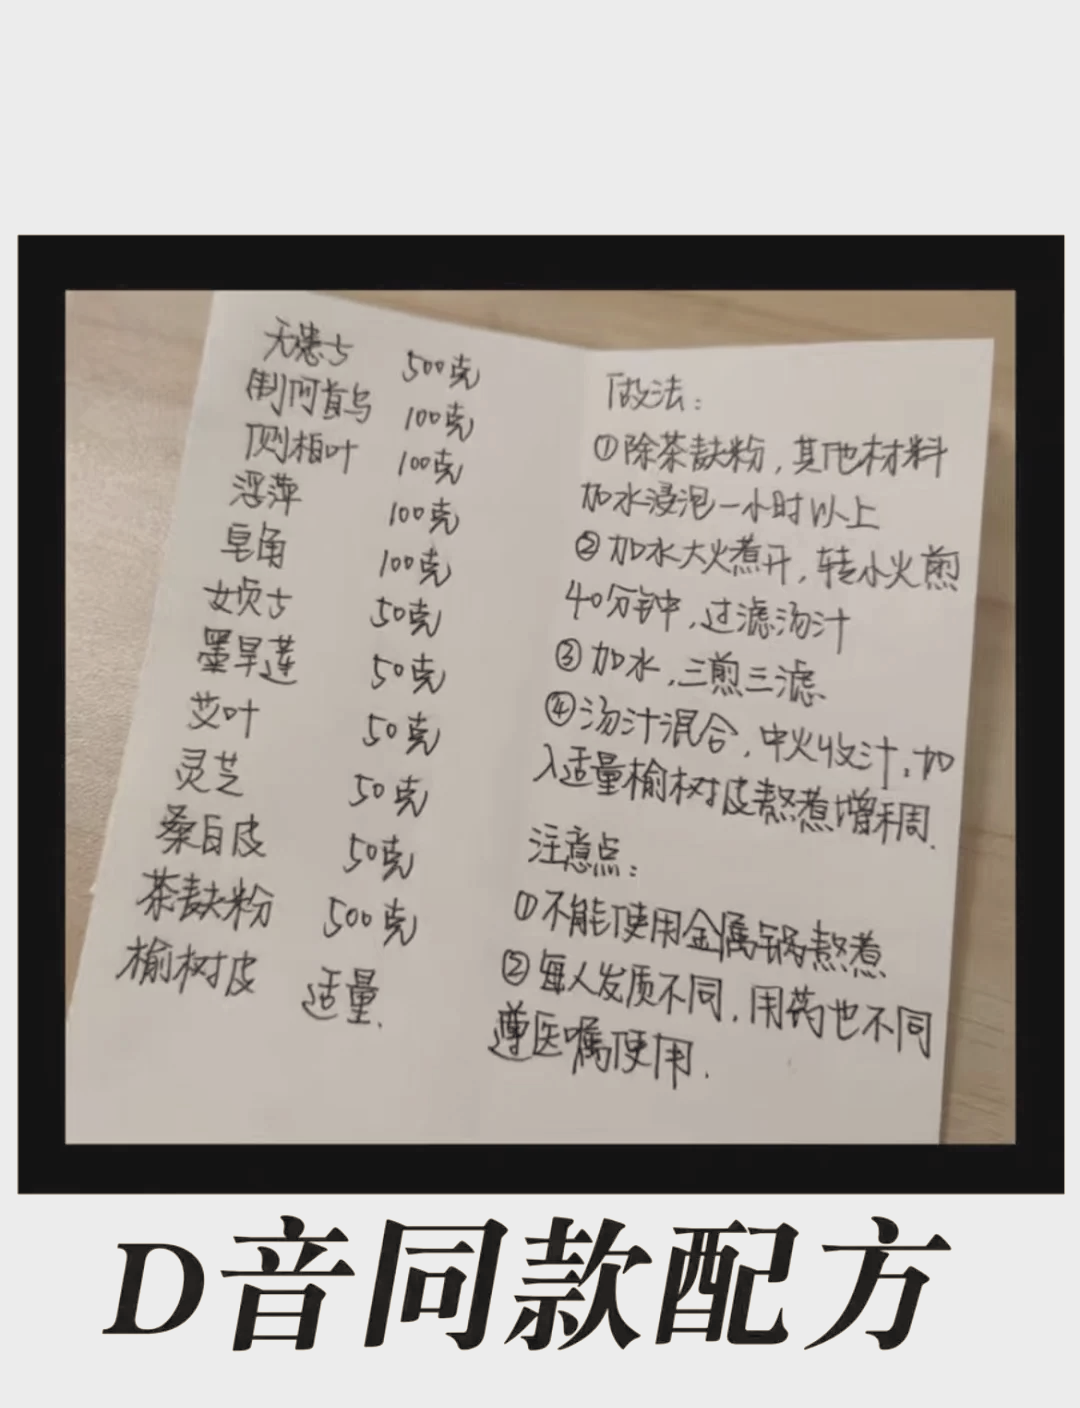 无患子 500克
制何首乌 100克
侧柏叶 100克
浮萍 100克
皂角 100克
女贞子 50克
墨旱莲 50克
艾叶 50克
灵芝 50克
桑白皮 50克
茶麸粉 500克
榆树皮 适量.
做法：
①除茶麸粉，其他材料
加水浸泡一小时以上
②加水大火煮开，转小火煎
40分钟，过滤汤汁
③加水，三煎三滤.
④汤汁混合，中火收汁，加
入适量榆树皮熬煮增稠.
注意点：
①不能使用金属锅熬煮
②每人发质不同，用药也不同
遵医嘱使用.
D音同款配方